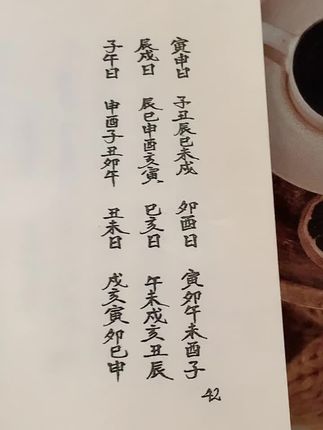 寅申日 子丑辰巳未戌 卯酉日 寅卯午未酉子
辰戌日 辰巳申酉亥寅 巳亥日 午未戌亥丑辰
子午日 申酉子丑卯午 丑未日 戌亥寅卯巳申
42